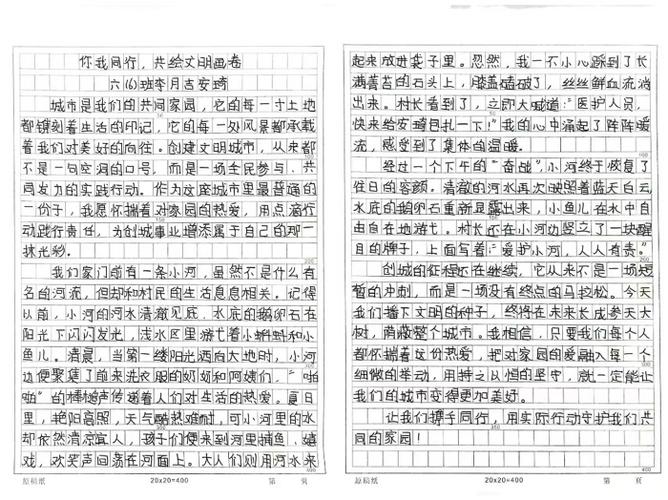 你我同行，共绘文明画卷
六(6)班李月吉安琦
城市是我们的共同家园，它的每一寸土地
都镌刻着生活的印记，它的每一处风景都承载
着我们对美好的向往。创建文明城市，从来都
不是一句空洞的口号，而是一场全民参与、共
同发力的实践行动。作为这座城市里最普通的
一份子，我愿怀揣着对家园的热爱，用点滴行
动践行责任，为创城事业增添属于自己的那一
抹光彩。
我们家门前有一条小河，虽然不是什么有
名的河流，但却和村民的生活息息相关。记得
以前，小河的河水清澈见底，水底的鹅卵石在
阳光下闪闪发光，浅水区里游弋着小蝌蚪和小
鱼儿。清晨，当第一缕阳光洒向大地时，小河
边便聚集了前来洗衣服的奶奶和阿姨们，“啪
啪”的棒槌声传递着人们对生活的热爱。夏日
里，艳阳高照，天气酷热难耐，可小河里的水
却依然清凉宜人，孩子们便来到河里捕鱼、嬉
戏，欢笑声回荡在河面上。大人们则用河水来
原稿纸 20x20=400 第 页
起来放进袋子里。忽然，我一不小心踩到了长
满青苔的石头上，膝盖磕破了，丝丝鲜血流淌
出来。村长看到了，立即大喊道：“医护人员，
快来给安琦包扎一下！”我的心中涌起了阵阵暖
流，感受到了集体的温暖。
经过一个下午的“奋战”，小河终于恢复了
往日的容颜。清澈的河水再次映照着蓝天白云，
水底的鹅卵石重新显露出来，小鱼儿在水中自
由自在地游弋。村长还在小河边竖立了一块醒
目的牌子，上面写着：“爱护小河，人人有责。”
创城的征程还在继续，它从来不是一场短
暂的冲刺，而是一场没有终点的马拉松。今天
我们播下文明的种子，终将在未来长成参天大
树，荫蔽整个城市。我相信，只要我们每个人
都怀揣着这份热爱，把对家园的爱融入每一个
细微的举动，用持之以恒的坚守，就一定能让
我们的城市变得更加美好。
让我们携手同行，用实际行动守护我们共
同的家园！
原稿纸 20x20=400 第 页